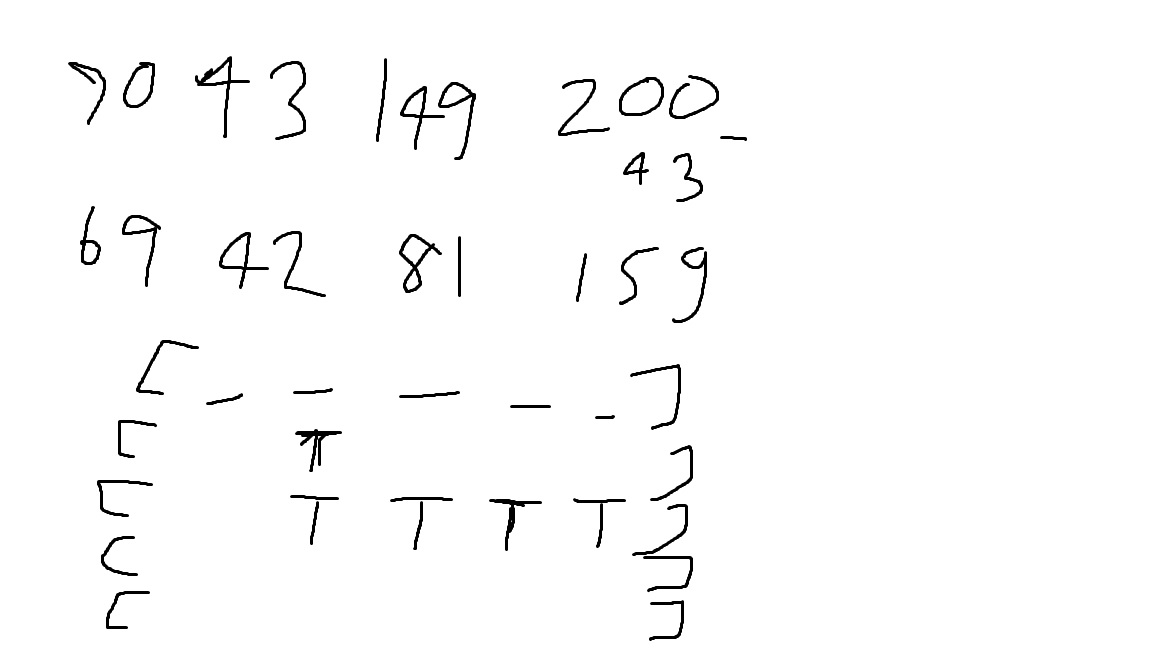 70 43 149 200
43
69 42 81 159
[ _ _ _ _ _ ]
[ T ]
[ T T T T ]
[ ]
[ ]